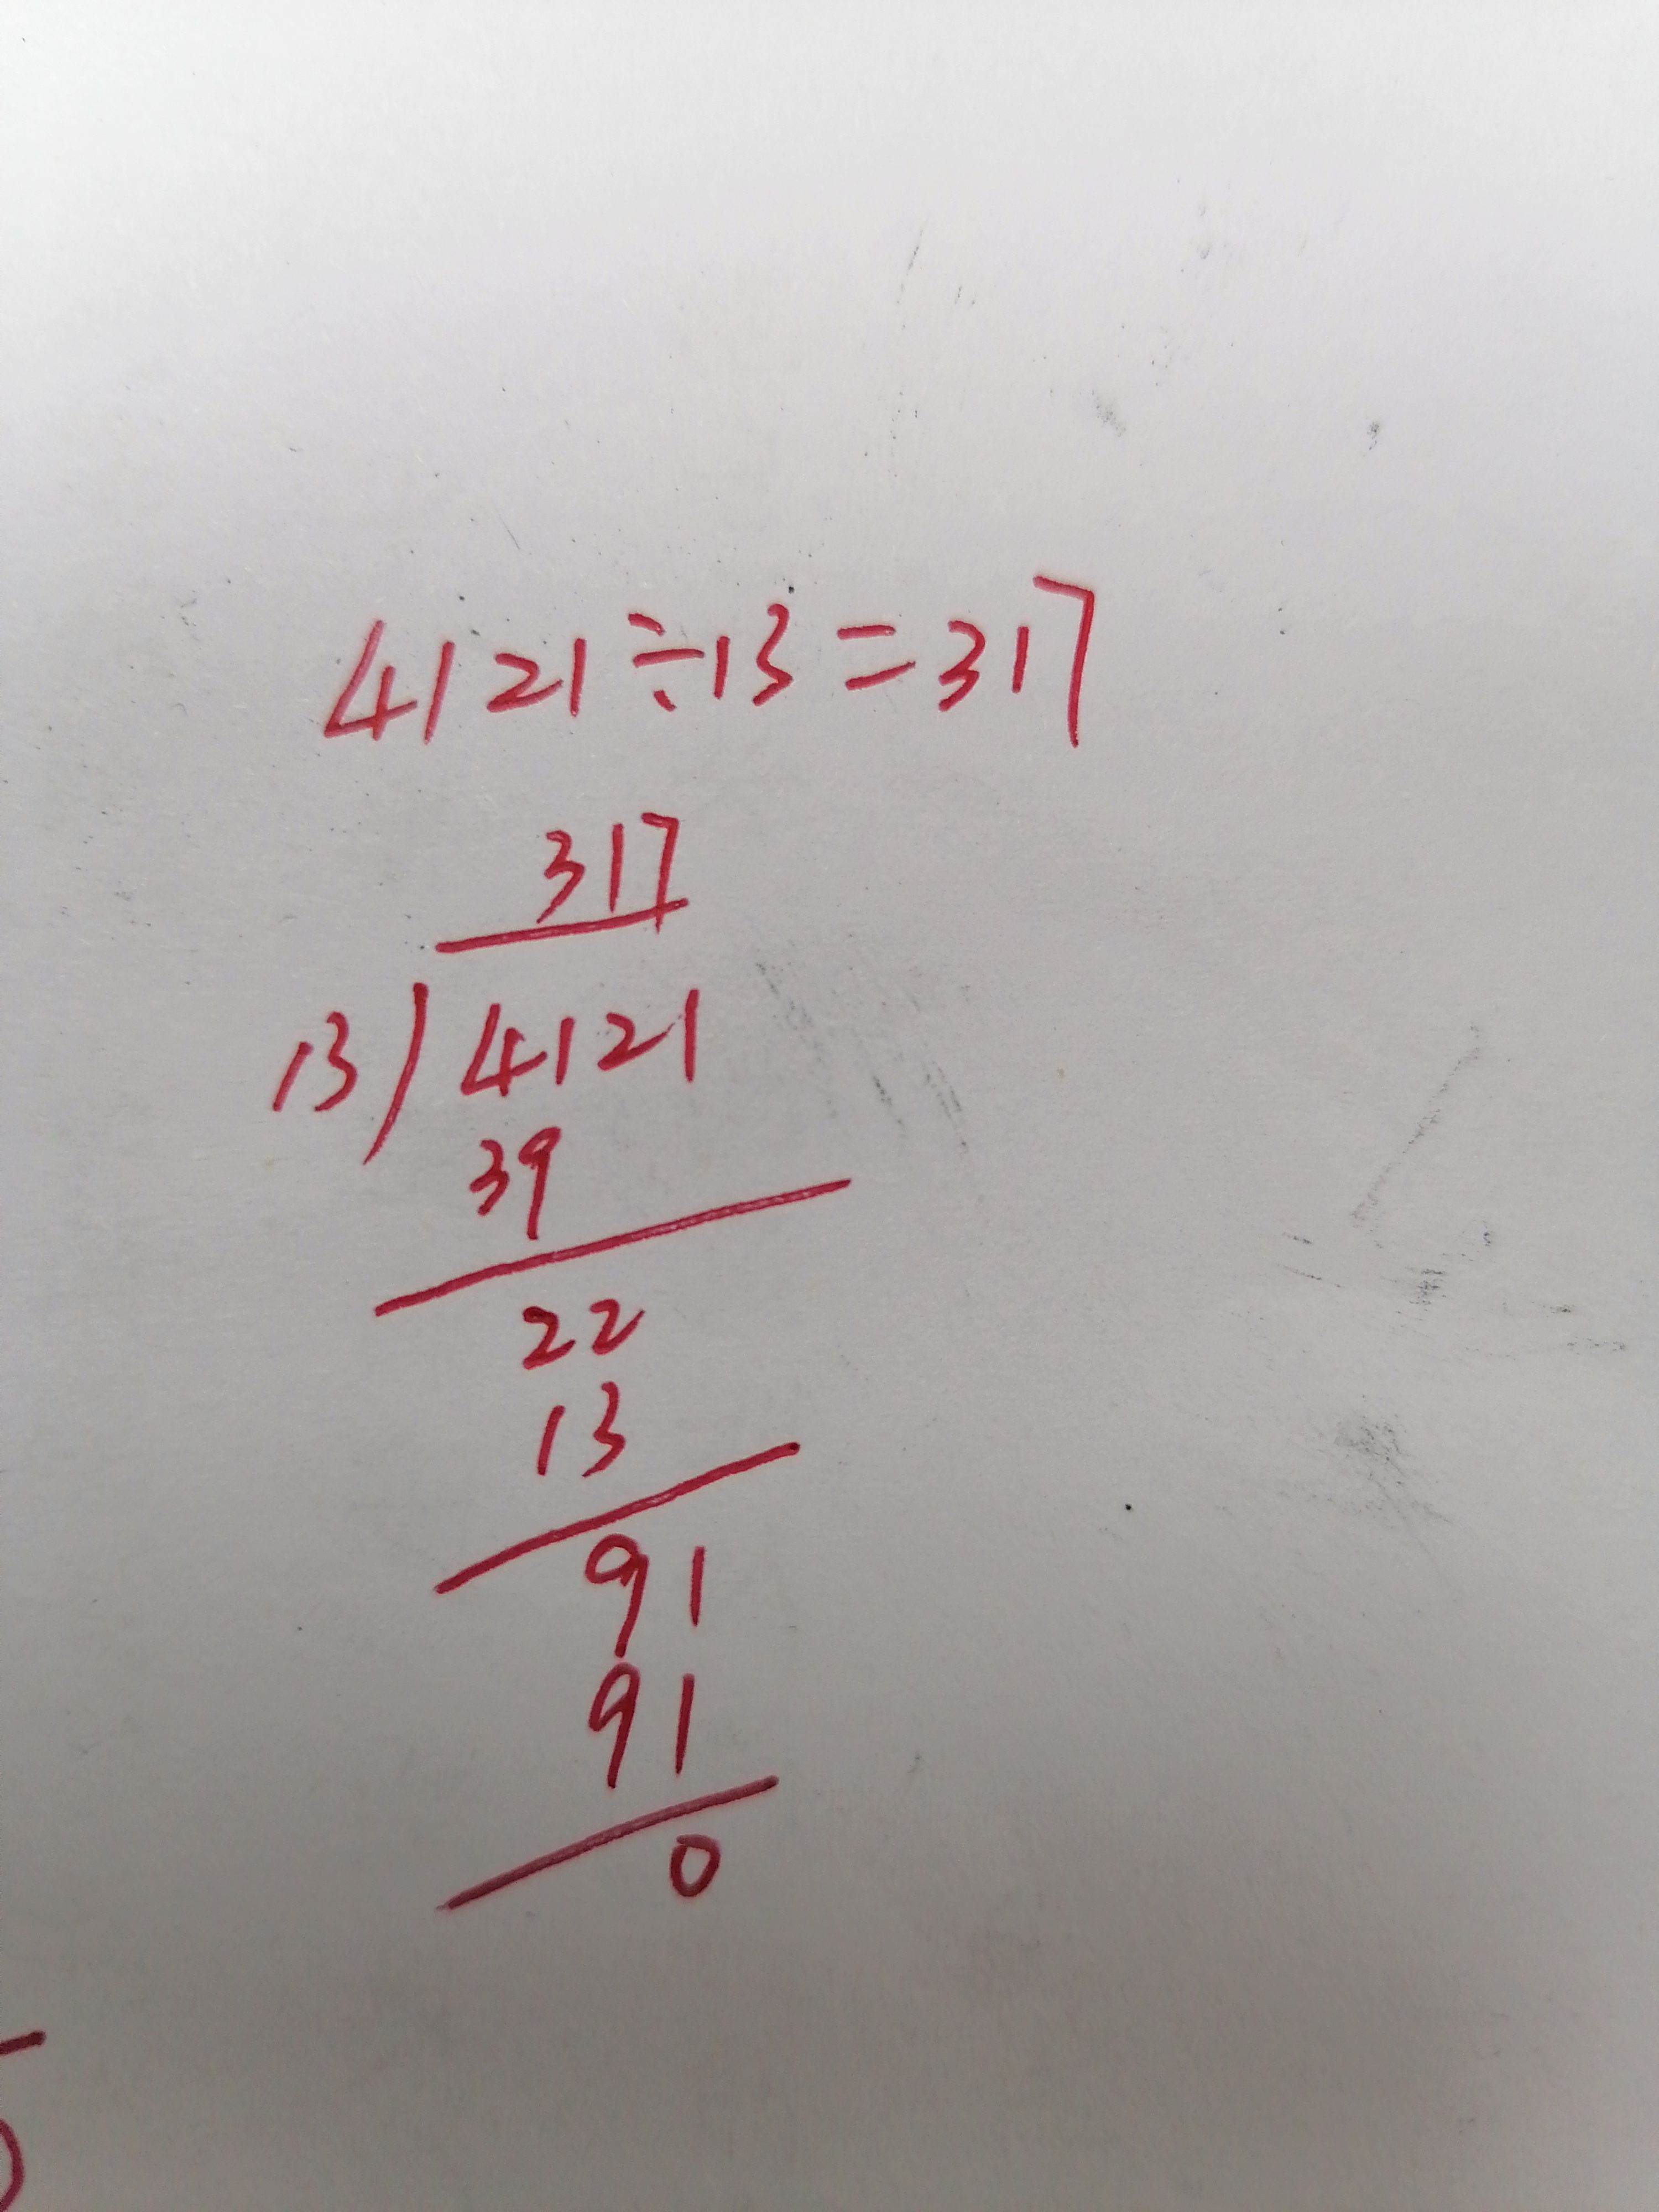 4121÷13=317
317
13)4121
39
22
13
91
91
0